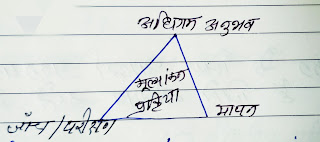 अधिगम अनुभव
मूल्यांकन
प्रक्रिया
जाँच / परीक्षण
मापन